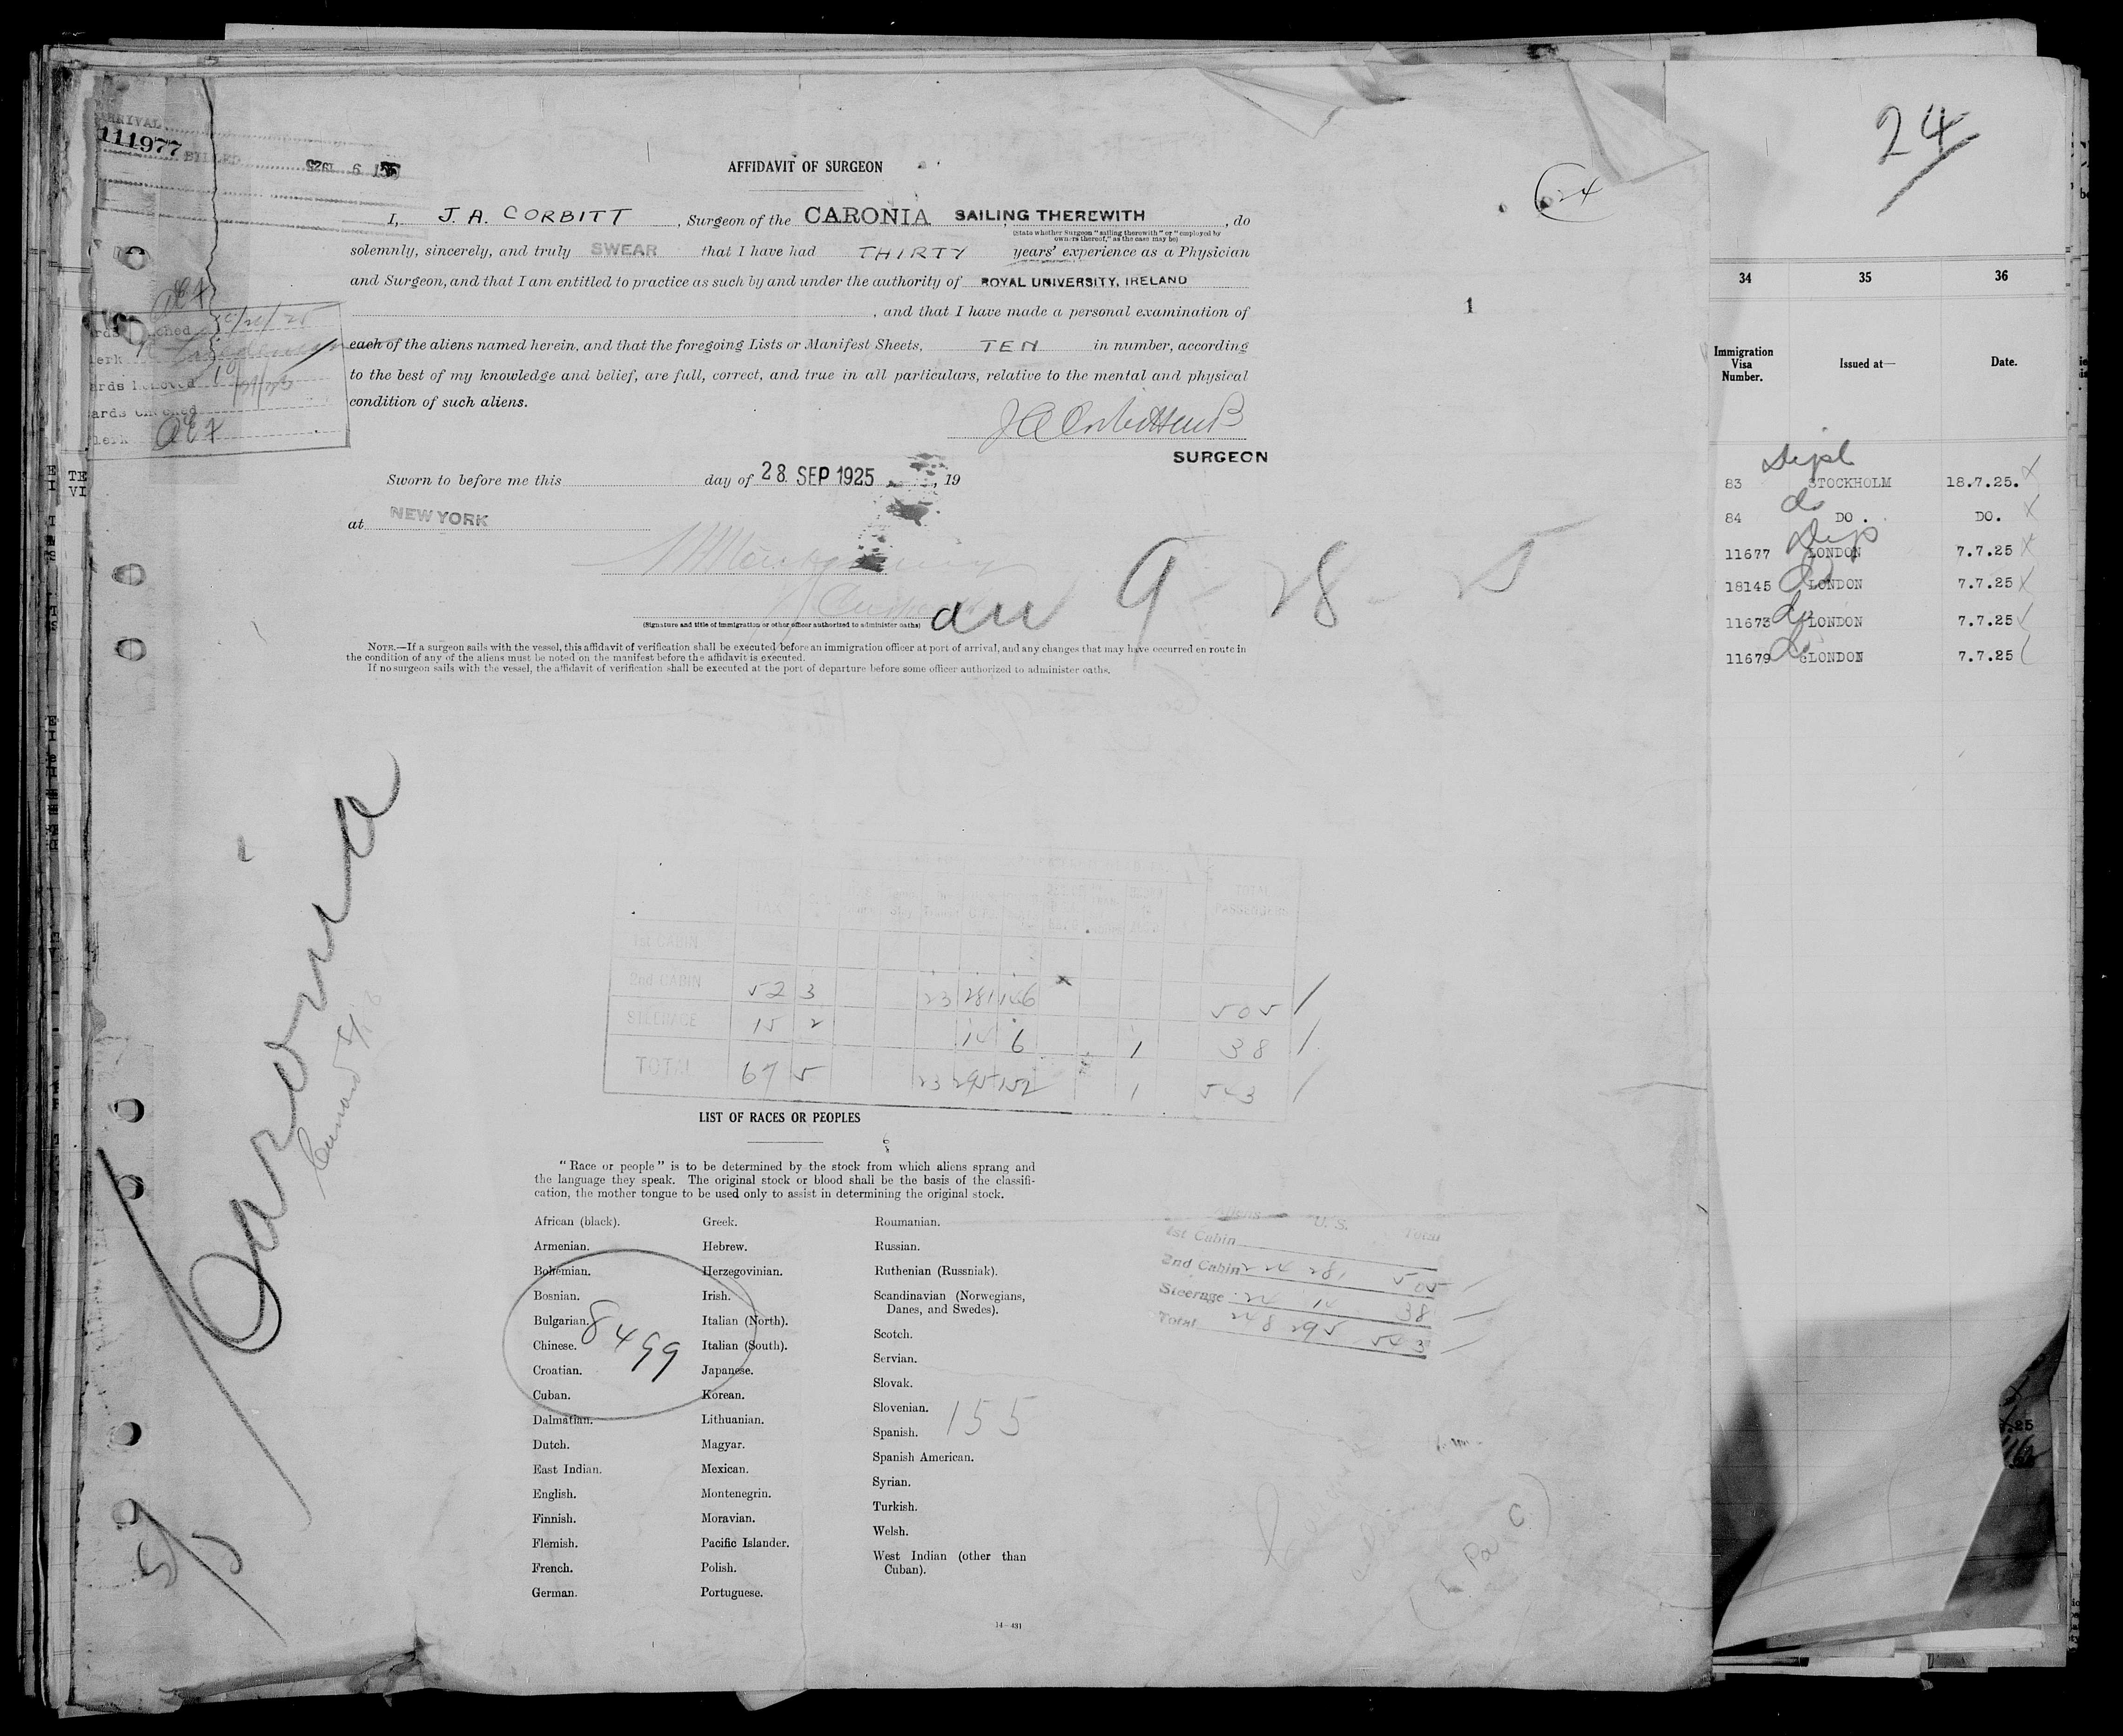 24
ARRIVAL
111977 BILLED
AFFIDAVIT OF SURGEON
24
I, J. A. CORBITT , Surgeon of the CARONIA , SAILING THEREWITH , do
(State whether Surgeon "sailing therewith" or "employed by
owners thereof," as the case may be)
solemnly, sincerely, and truly SWEAR that I have had THIRTY years' experience as a Physician
and Surgeon, and that I am entitled to practice as such by and under the authority of ROYAL UNIVERSITY, IRELAND
, and that I have made a personal examination of
each of the aliens named herein, and that the foregoing Lists or Manifest Sheets, TEN in number, according
to the best of my knowledge and belief, are full, correct, and true in all particulars, relative to the mental and physical
condition of such aliens.
SURGEON
Sworn to before me this day of 28 SEP 1925 , 19
at NEW YORK
9 - 28 - 25
(Signature and title of immigration or other officer authorized to administer oaths)
NOTE.—If a surgeon sails with the vessel, this affidavit of verification shall be executed before an immigration officer at port of arrival, and any changes that may have occurred en route in
the condition of any of the aliens must be noted on the manifest before the affidavit is executed.
If no surgeon sails with the vessel, the affidavit of verification shall be executed at the port of departure before some officer authorized to administer oaths.
1
34 35 36
Immigration
Visa
Number.
Issued at—
Date.
Dipl
83 STOCKHOLM 18.7.25. X
do
84 DO. DO. X
Dip
11677 LONDON 7.7.25 X
18145 do LONDON 7.7.25
11673 do LONDON 7.7.25
11679 do LONDON 7.7.25
Caronia
Cunard
TOTAL
PASSENGERS
1st CABIN
2nd CABIN 52 3 23 281 146 505
STEERAGE 15 2 14 6 1 38
TOTAL 67 5 23 295 152 1 543
LIST OF RACES OR PEOPLES
"Race or people" is to be determined by the stock from which aliens sprang and
the language they speak. The original stock or blood shall be the basis of the classifi-
cation, the mother tongue to be used only to assist in determining the original stock.
African (black).
Armenian.
Bohemian.
Bosnian.
Bulgarian.
Chinese.
Croatian.
Cuban.
Dalmatian.
Dutch.
East Indian.
English.
Finnish.
Flemish.
French.
German.
8499
Greek.
Hebrew.
Herzegovinian.
Irish.
Italian (North).
Italian (South).
Japanese.
Korean.
Lithuanian.
Magyar.
Mexican.
Montenegrin.
Moravian.
Pacific Islander.
Polish.
Portuguese.
Roumanian.
Russian.
Ruthenian (Russniak).
Scandinavian (Norwegians,
Danes, and Swedes).
Scotch.
Servian.
Slovak.
Slovenian.
Spanish.
Spanish American.
Syrian.
Turkish.
Welsh.
West Indian (other than
Cuban).
155
Aliens U. S. Total
1st Cabin
2nd Cabin 224 281 505
Steerage 24 14 38
Total 248 295 543
14—431